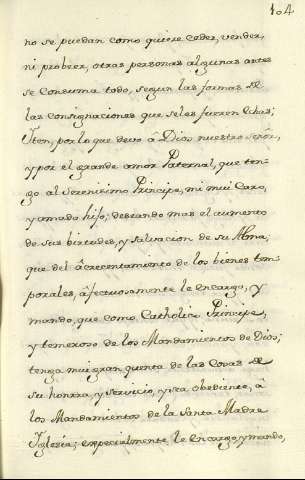 104
no se puedan como quiere ceder, vender,
ni probeer, otras personas algunas antes
se consuma todo, segun las formas de
las consignaciones que seles fueren echas;
Iten, por lo que devo â Dios nuestro señor,
y por el grande amor Paternal, que ten-
go al Serenisimo Principe, mi mui Caro,
y amado hijo; deseando mas el aumento
de sus birtudes, y salvacion de su Alma,
que del âcrecentamiento de los bienes tem-
porales, âfectuosamente le encargo, y
mando, que como Catholico Principe,
y temeroso de los Mandamientos de Dios;
tenga mui gran quenta de las Cosas de
su honrra, y servicio, y sea obediente, â
los Mandamientos de la Santa Madre
Yglesia; especialmente le encargo y mando,